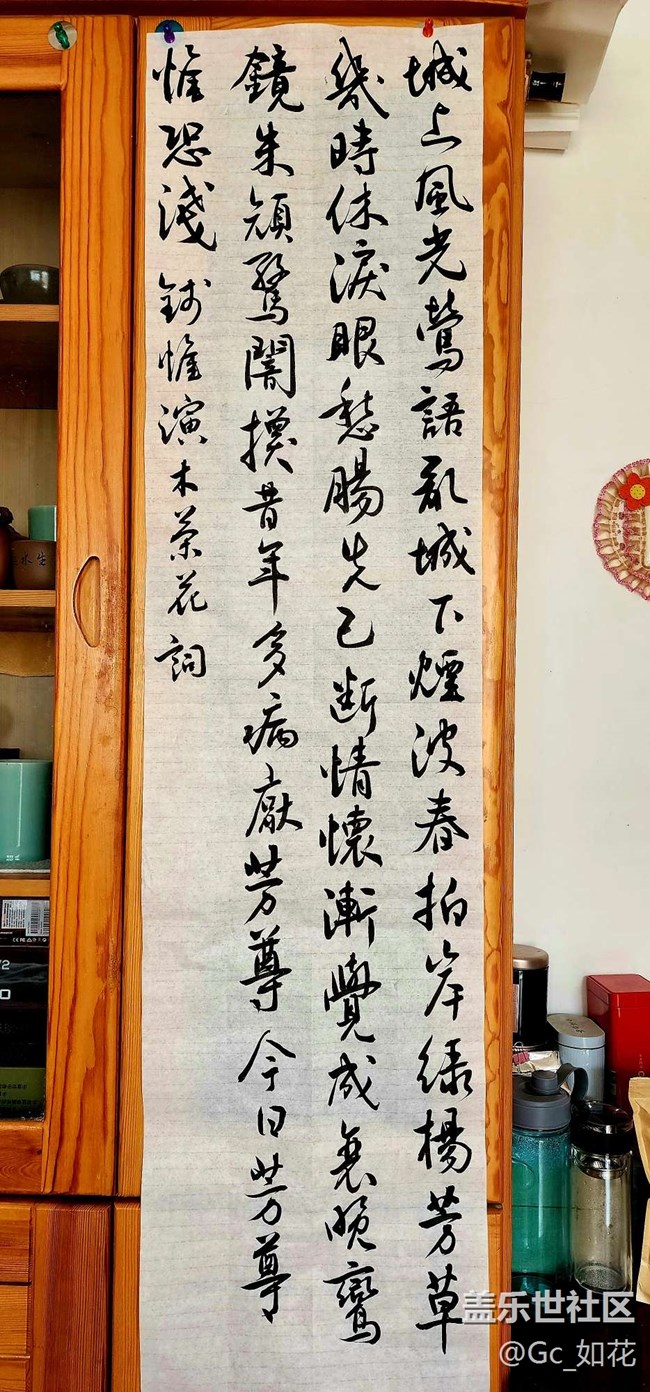 城上風光鶯語亂城下煙波春拍岸綠楊芳草
幾時休淚眼愁腸先已斷情懷漸覺成衰晚鸞
鏡朱顔驚闇換昔年多病厭芳尊今日芳尊
惟恐淺 錢惟演木蘭花詞
盖乐世社区
@Gc_如花